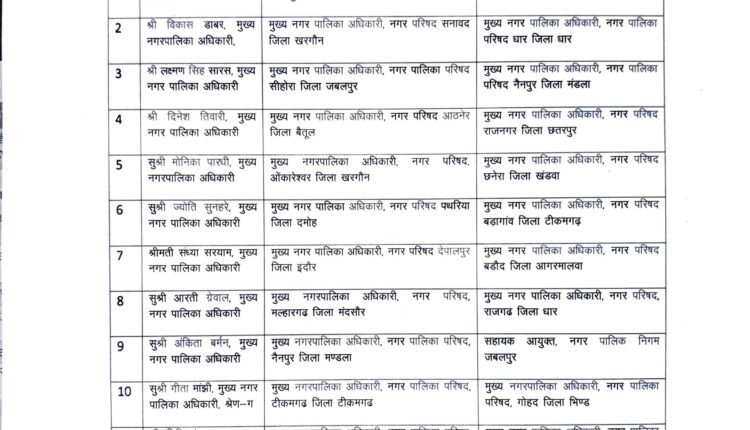 2
श्री विकास डाबर, मुख्य
नगरपालिका अधिकारी,
मुख्य नगर पालिका अधिकारी, नगर परिषद सनावद
जिला खरगौन
मुख्य नगर पालिका अधिकारी, नगर पालिका
परिषद धार जिला धार
3
श्री लक्ष्मण सिंह सारस, मुख्य
नगर पालिका अधिकारी
मुख्य नगर पालिका अधिकारी, नगर पालिका परिषद
सीहोरा जिला जबलपुर
मुख्य नगर पालिका अधिकारी, नगर पालिका
परिषद नैनपुर जिला मंडला
4
श्री दिनेश तिवारी, मुख्य
नगर पालिका अधिकारी
मुख्य नगर पालिका अधिकारी, नगर परिषद आठनेर
जिला बैतूल
मुख्य नगर पालिका अधिकारी, नगर परिषद
राजनगर जिला छतरपुर
5
सुश्री मोनिका पारधी, मुख्य
नगरपालिका अधिकारी
मुख्य नगरपालिका अधिकारी, नगर परिषद,
ओंकारेश्वर जिला खरगौन
मुख्य नगर पालिका अधिकारी, नगर परिषद
छनेरा जिला खंडवा
6
सुश्री ज्योति सुनहरे, मुख्य
नगर पालिका अधिकारी
मुख्य नगर पालिका अधिकारी, नगर परिषद पथरिया
जिला दमोह
मुख्य नगर पालिका अधिकारी, नगर परिषद
बडागांव जिला टीकमगढ़
7
श्रीमती संध्या सरयाम, मुख्य
नगर पालिका अधिकारी
मुख्य नगर पालिका अधिकारी, नगर परिषद देपालपुर
जिला इंदौर
मुख्य नगर पालिका अधिकारी, नगर परिषद
बडौद जिला आगरमालवा
8
सुश्री आरती ग्रेवाल, मुख्य
नगर पालिका अधिकारी
मुख्य नगरपालिका अधिकारी, नगर परिषद,
मल्हारगढ जिला मंदसौर
मुख्य नगर पालिका अधिकारी, नगर परिषद,
राजगढ जिला धार
9
सुश्री अंकिता बर्मन, मुख्य
नगर पालिका अधिकारी
मुख्य नगरपालिका अधिकारी, नगर पालिका परिषद,
नैनपुर जिला मण्डला
सहायक आयुक्त, नगर पालिक निगम
जबलपुर
10
सुश्री गीता मांझी, मुख्य नगर
पालिका अधिकारी, श्रेण–ग
मुख्य नगरपालिका अधिकारी, नगर पालिका परिषद,
टीकमगढ जिला टीकमगढ
मुख्य नगरपालिका अधिकारी, नगर पालिका
परिषद, गोहद जिला भिण्ड